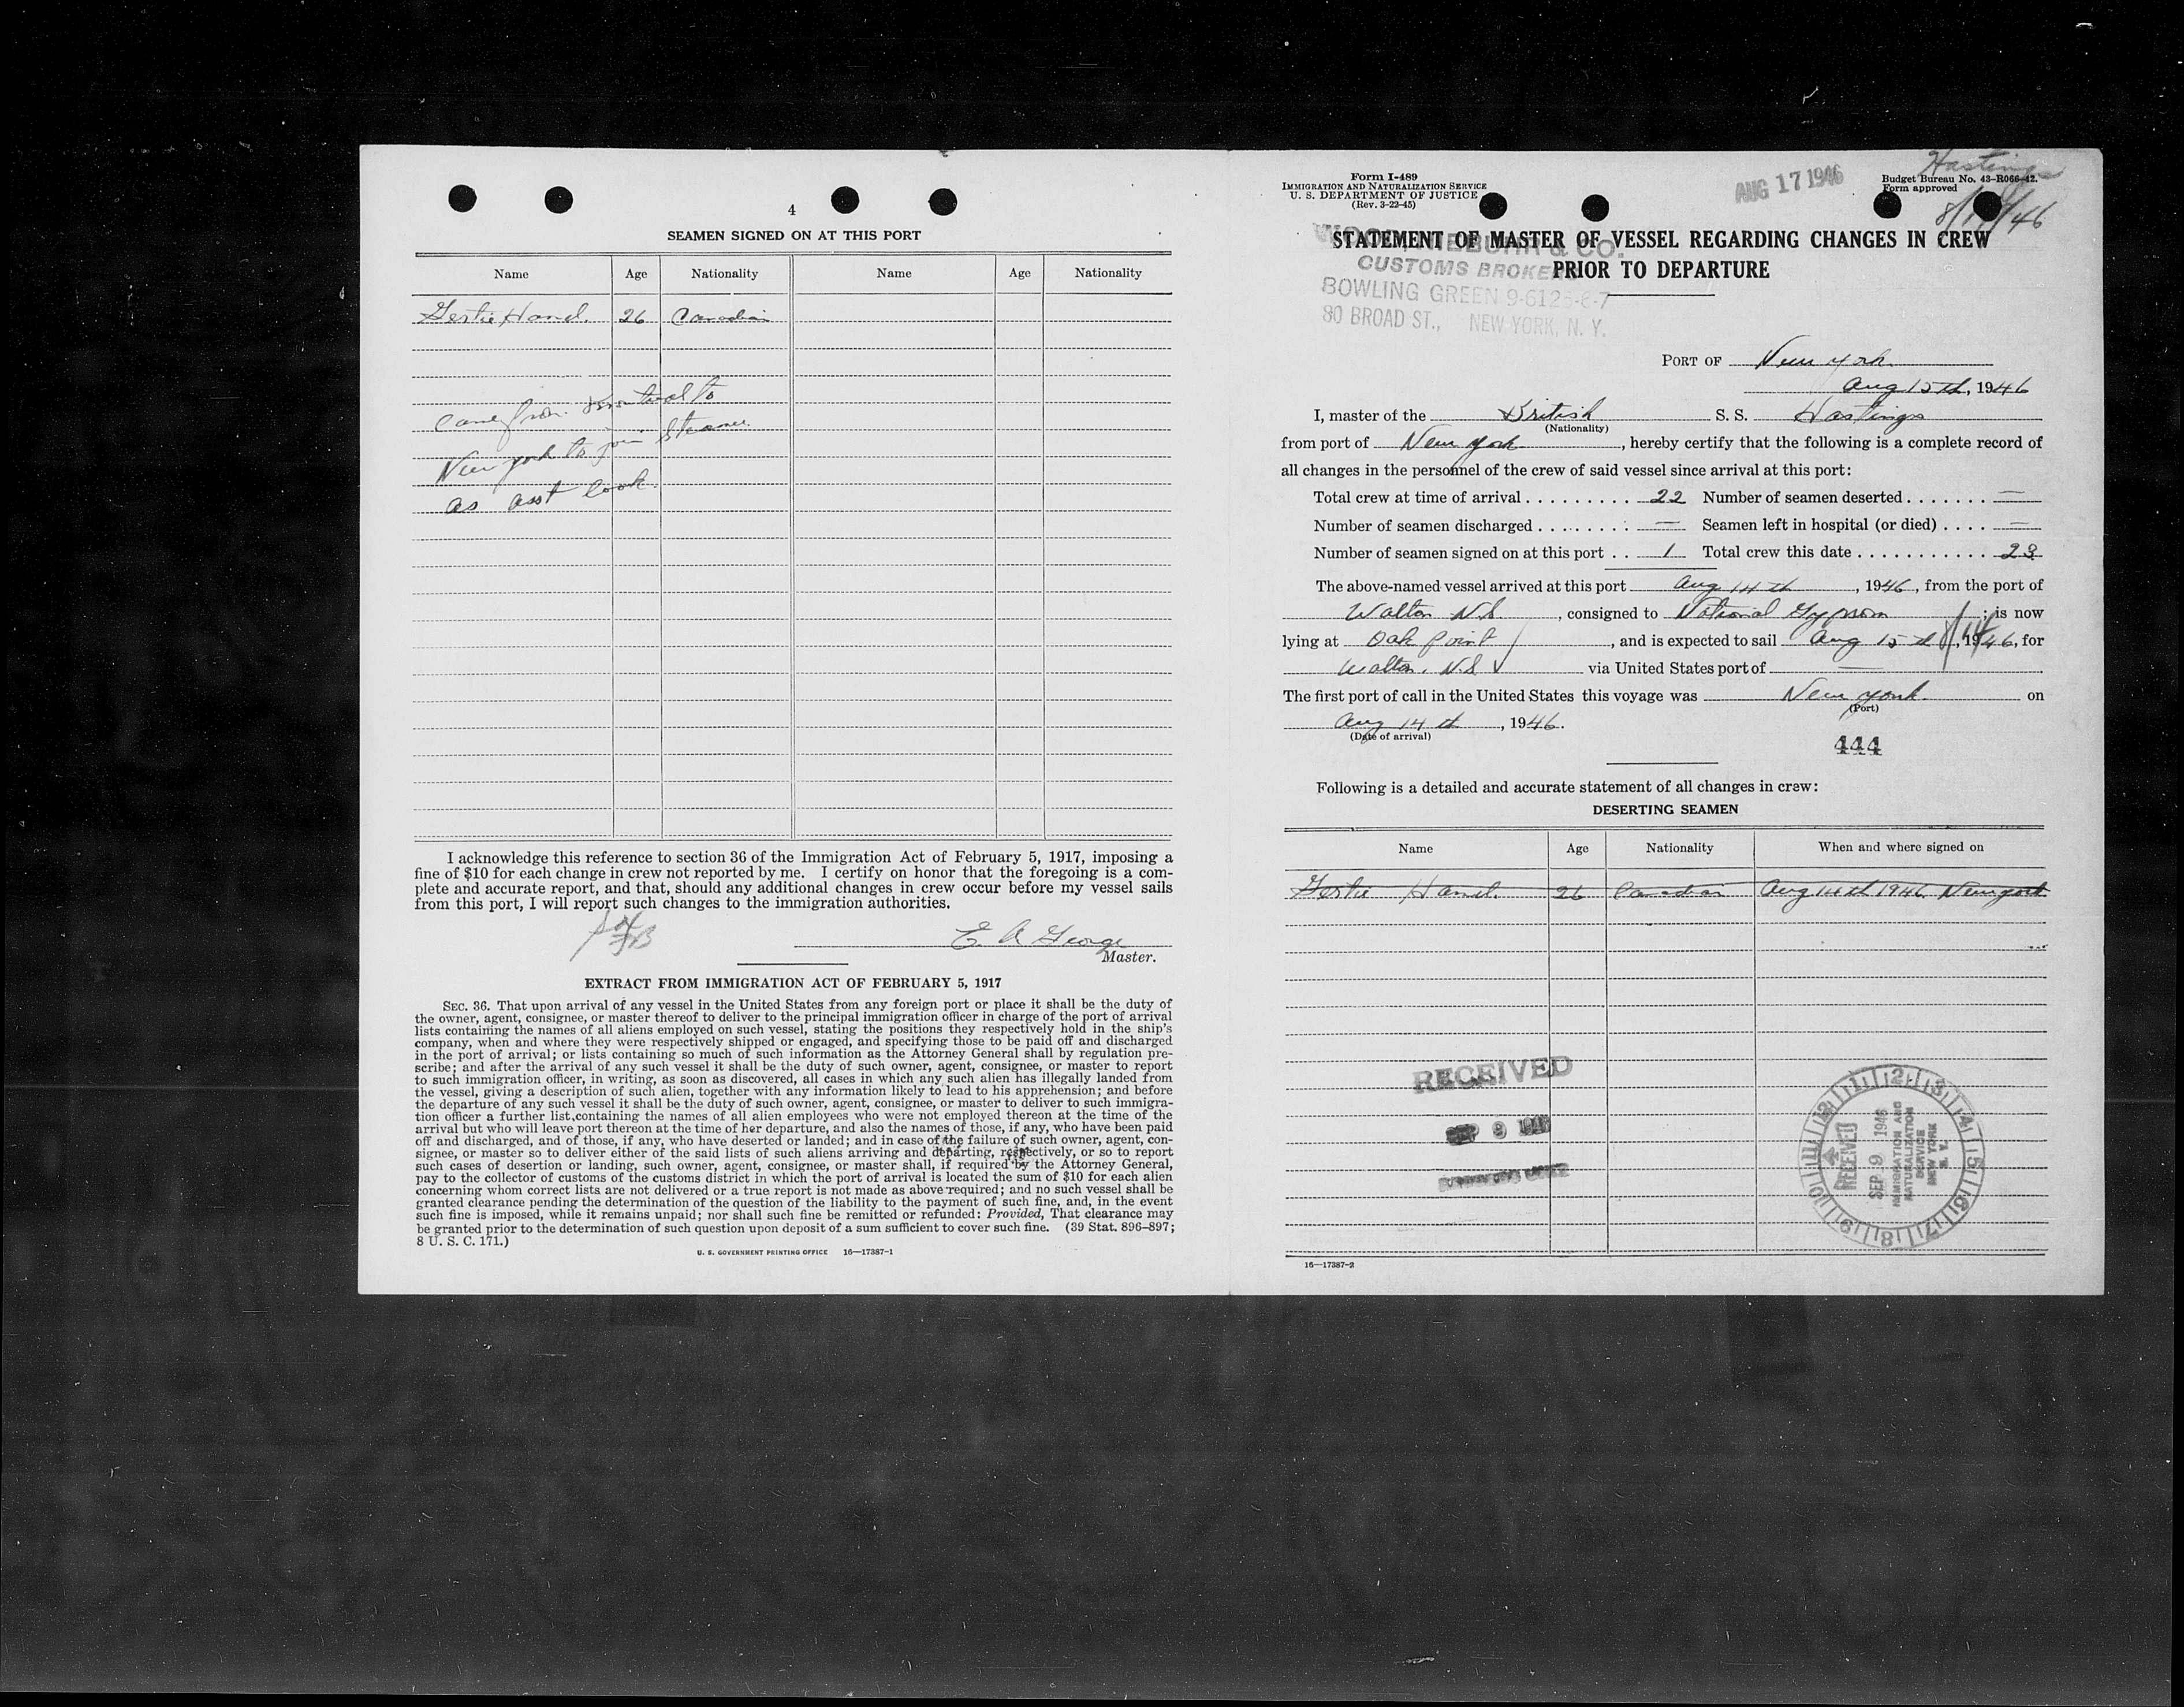 4
SEAMEN SIGNED ON AT THIS PORT
Name Age Nationality Name Age Nationality
26 Canadian
Came from Montreal to
New York to join Steamer
as asst Cook.
I acknowledge this reference to section 36 of the Immigration Act of February 5, 1917, imposing a
fine of $10 for each change in crew not reported by me. I certify on honor that the foregoing is a com-
plete and accurate report, and that, should any additional changes in crew occur before my vessel sails
from this port, I will report such changes to the immigration authorities.
E A George
Master.
EXTRACT FROM IMMIGRATION ACT OF FEBRUARY 5, 1917
SEC. 36. That upon arrival of any vessel in the United States from any foreign port or place it shall be the duty of
the owner, agent, consignee, or master thereof to deliver to the principal immigration officer in charge of the port of arrival
lists containing the names of all aliens employed on such vessel, stating the positions they respectively hold in the ship's
company, when and where they were respectively shipped or engaged, and specifying those to be paid off and discharged
in the port of arrival; or lists containing so much of such information as the Attorney General shall by regulation pre-
scribe; and after the arrival of any such vessel it shall be the duty of such owner, agent, consignee, or master to report
to such immigration officer, in writing, as soon as discovered, all cases in which any such alien has illegally landed from
the vessel, giving a description of such alien, together with any information likely to lead to his apprehension; and before
the departure of any such vessel it shall be the duty of such owner, agent, consignee, or master to deliver to such immigra-
tion officer a further list containing the names of all alien employees who were not employed thereon at the time of the
arrival but who will leave port thereon at the time of her departure, and also the names of those, if any, who have been paid
off and discharged, and of those, if any, who have deserted or landed; and in case of the failure of such owner, agent, con-
signee, or master so to deliver either of the said lists of such aliens arriving and departing, respectively, or so to report
such cases of desertion or landing, such owner, agent, consignee, or master shall, if required by the Attorney General,
pay to the collector of customs of the customs district in which the port of arrival is located the sum of $10 for each alien
concerning whom correct lists are not delivered or a true report is not made as above required; and no such vessel shall be
granted clearance pending the determination of the question of the liability to the payment of such fine, and, in the event
such fine is imposed, while it remains unpaid; nor shall such fine be remitted or refunded: Provided, That clearance may
be granted prior to the determination of such question upon deposit of a sum sufficient to cover such fine. (39 Stat. 896–897;
8 U. S. C. 171.)
U. S. GOVERNMENT PRINTING OFFICE 16—17387-1
Hastings
Form I-489
IMMIGRATION AND NATURALIZATION SERVICE
U. S. DEPARTMENT OF JUSTICE
(Rev. 3-22-45)
AUG 17 1946
Budget Bureau No. 43-R066-42.
Form approved
STATEMENT OF MASTER OF VESSEL REGARDING CHANGES IN CREW
PRIOR TO DEPARTURE
& CO.
CUSTOMS BROKERS
BOWLING GREEN 9-6125-6-7
80 BROAD ST., NEW YORK, N. Y.
PORT OF New York
Aug 15th, 1946
I, master of the British S. S. Hastings
(Nationality)
from port of New York, hereby certify that the following is a complete record of
all changes in the personnel of the crew of said vessel since arrival at this port:
Total crew at time of arrival . . . . . . . . . 22 Number of seamen deserted . . . . . . . —
Number of seamen discharged . . . . . . . . — Seamen left in hospital (or died) . . . . —
Number of seamen signed on at this port . . 1 Total crew this date . . . . . . . . . . . 23
The above-named vessel arrived at this port Aug 14th, 1946, from the port of
Walton N.S., consigned to National Gypsom; is now
lying at Oak Point, and is expected to sail Aug 15th, 1946, for
Walton, N.S. via United States port of —
The first port of call in the United States this voyage was New York on
(Port)
Aug 14th, 1946.
(Date of arrival)
444
Following is a detailed and accurate statement of all changes in crew:
DESERTING SEAMEN
Name Age Nationality When and where signed on
26 Canadian Aug 14th 1946 New York
RECEIVED
SEP 9 1946
RECEIVED
SEP 9 1946
IMMIGRATION AND
NATURALIZATION
SERVICE
NEW YORK
N. Y.
16—17387-2